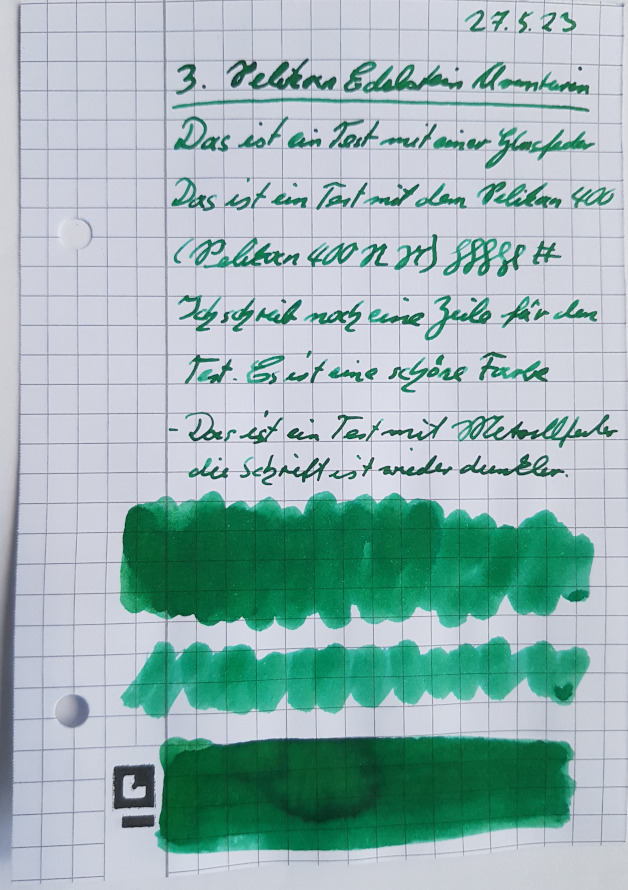 27.5.23
3. Pelikan Edelstein Aventurin
Das ist ein Test mit einer Glasfeder
Das ist ein Test mit dem Pelikan 400
(Pelikan 400 N
Ich schreib noch eine Zeile für den
Test. Es ist eine schöne Farbe
- Das ist ein Test mit Metallfeder
die Schrift ist wieder dunkler.